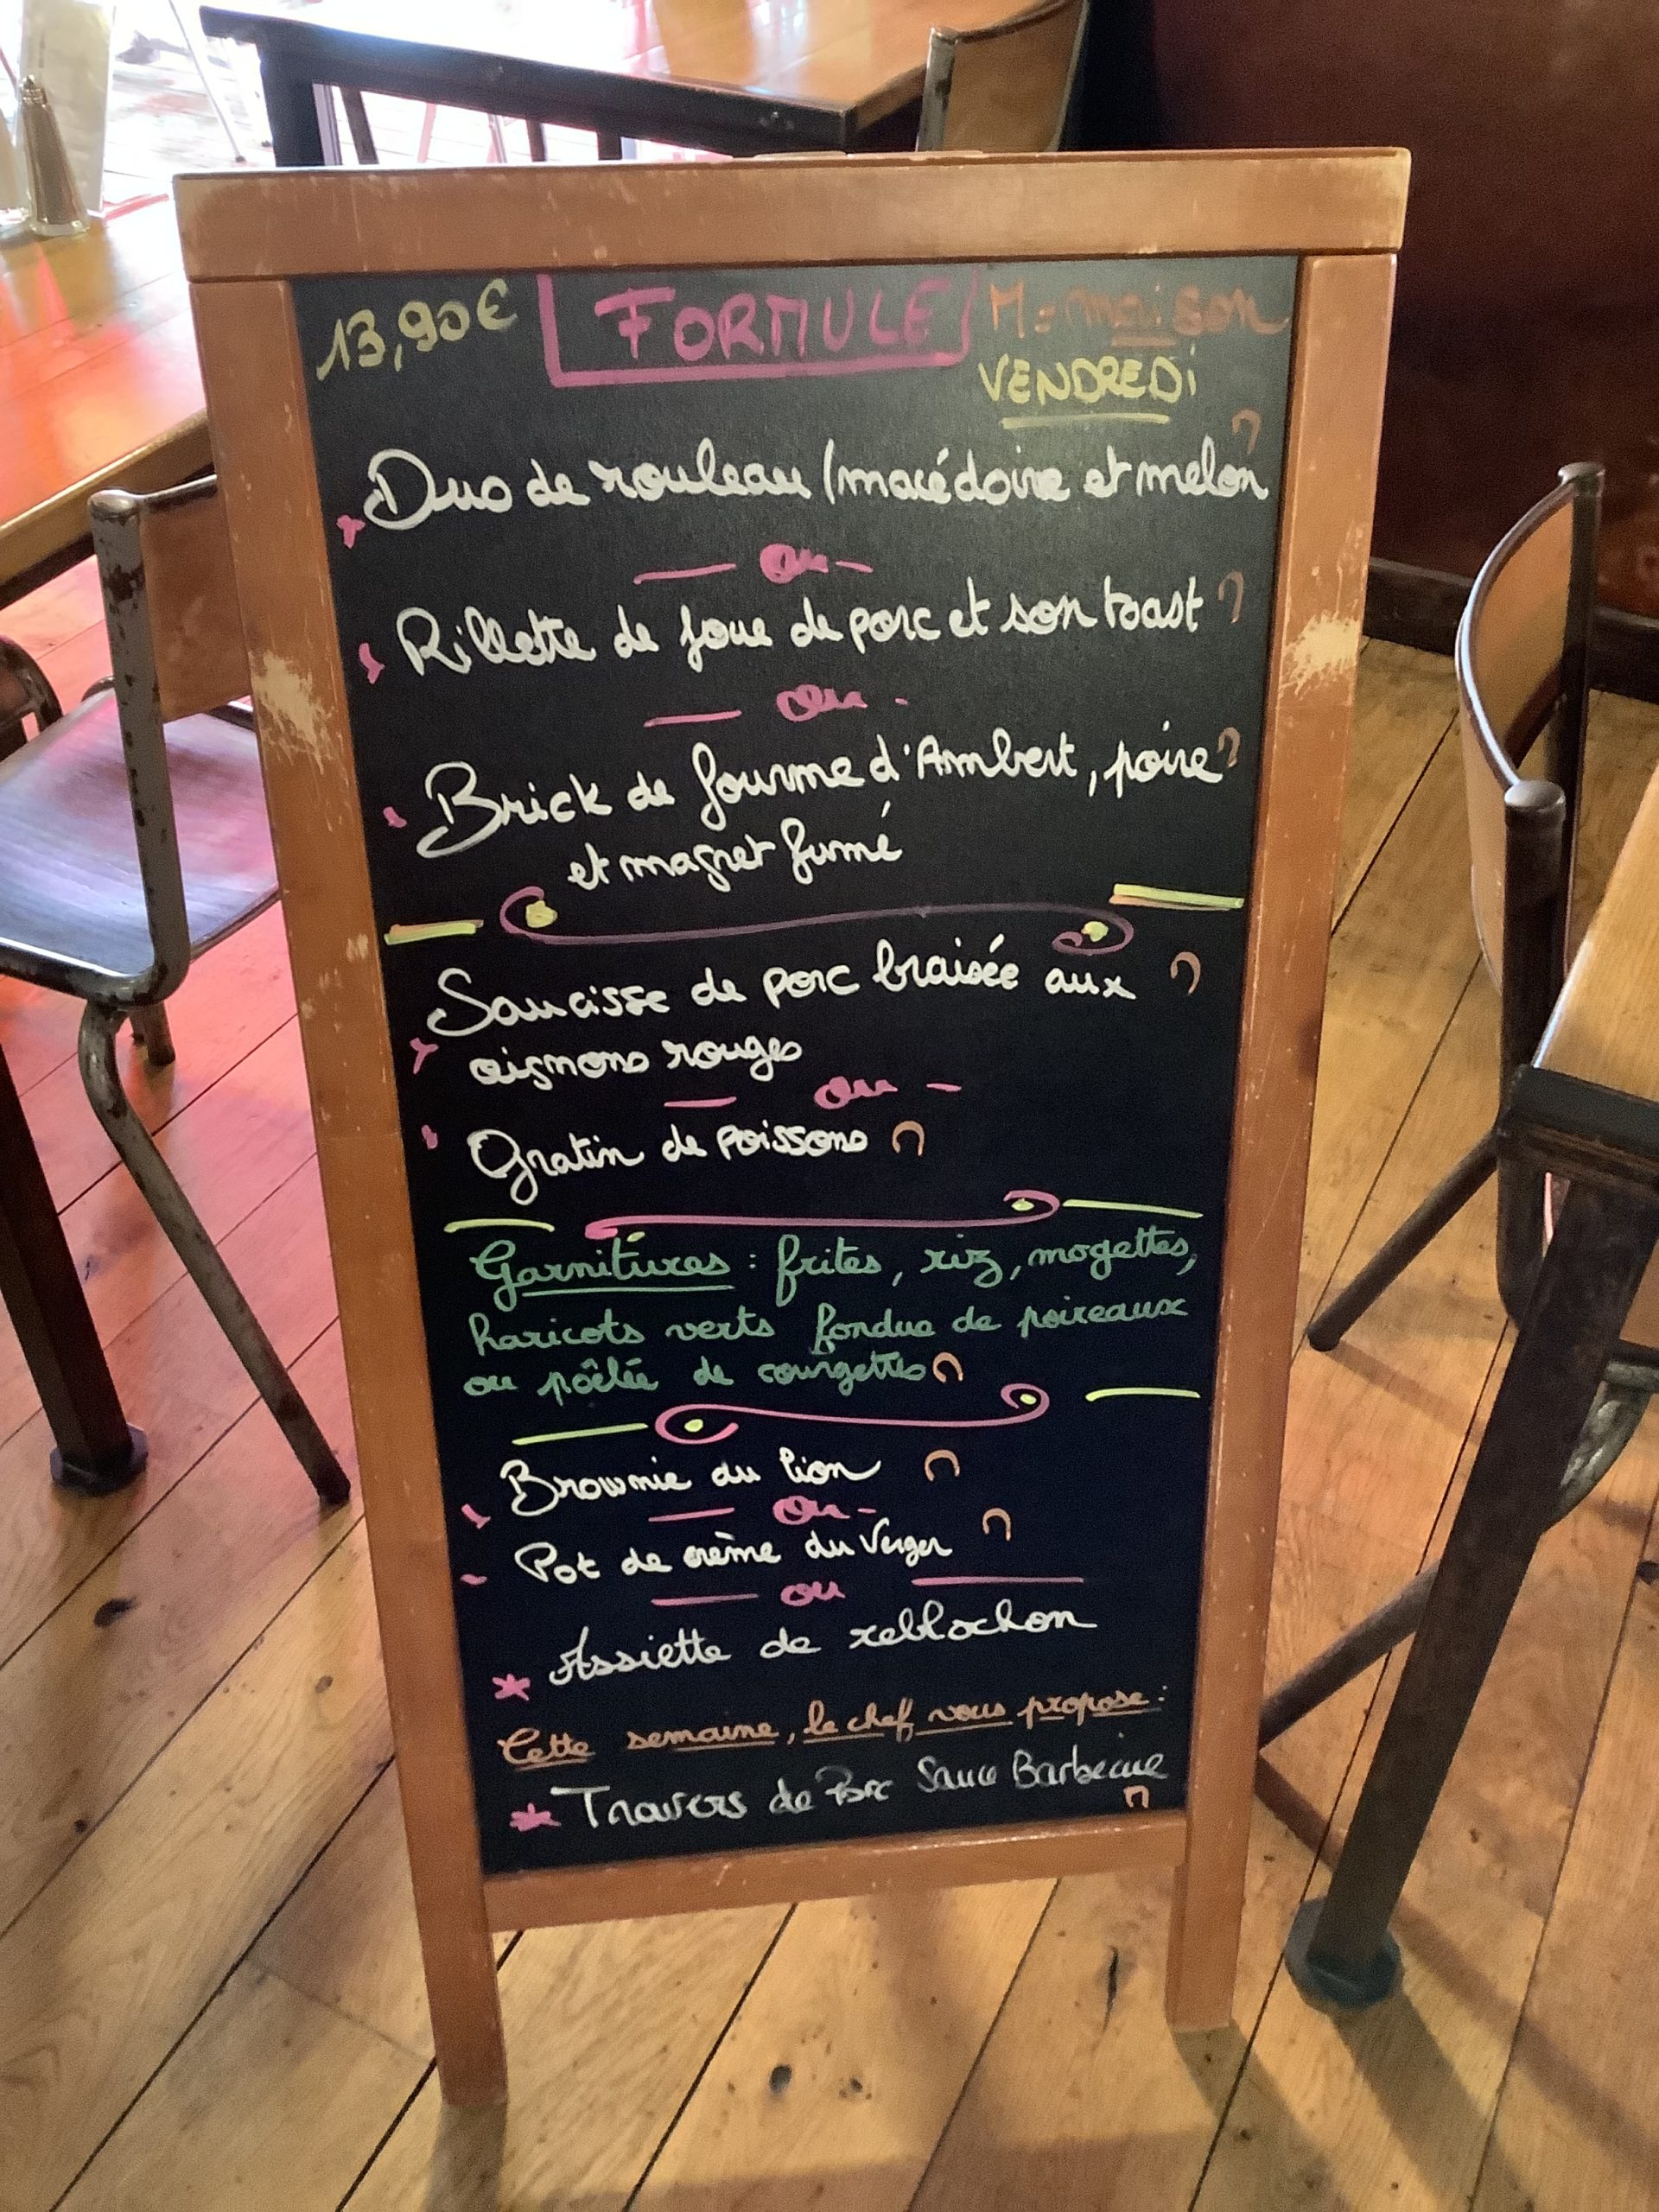 13,90€ FORMULE M = maison
VENDREDi
Duo de rouleau (macédoine et melon M
ou
Rillette de joue de porc et son toast M
ou
Brick de fourme d'Ambert, poire M
et magret fumé
Saucisse de porc braisée aux M
oignons rouges
ou
Gratin de poissons M
Garnitures : frites, riz, mogettes,
haricots verts fondue de poireaux
ou pôêlée de courgettes M
Brownie du lion M
ou
Pot de crème du Verger M
ou
Assiette de reblochon
Cette semaine, le chef vous propose :
Travers de Porc Sauce Barbecue
M